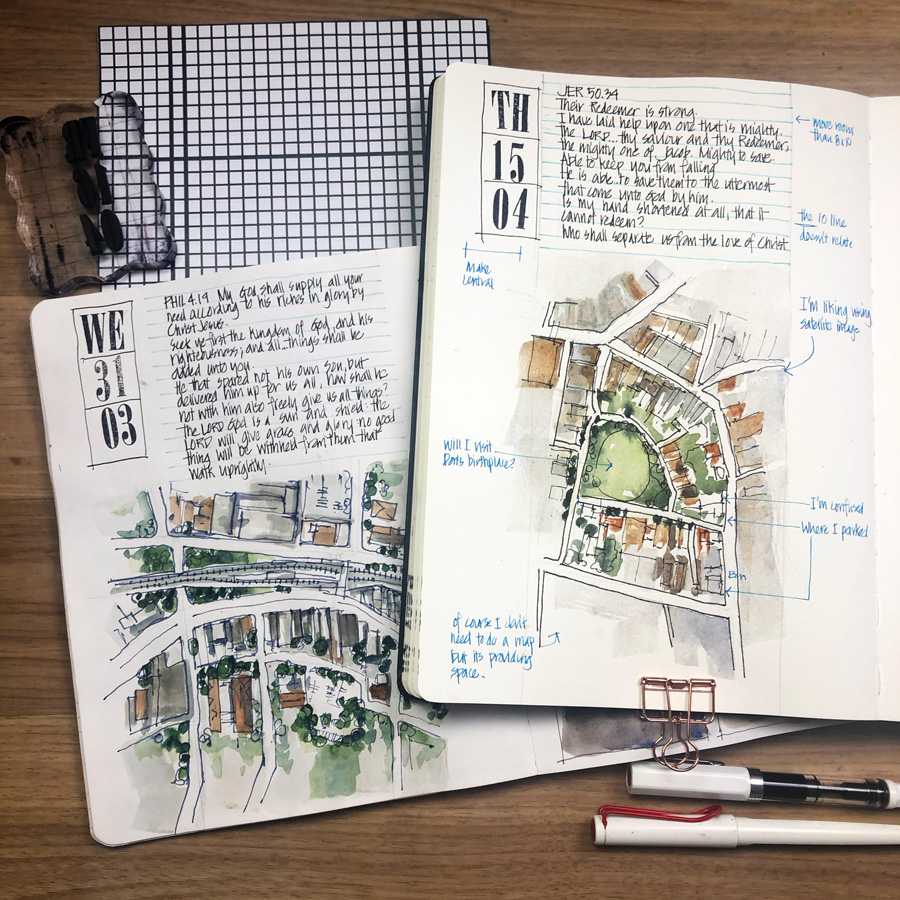 WE
31
03
PHIL 4.19 My God shall supply all your
need according to his riches in glory by
Christ Jesus.
Seek ye first the kingdom of God, and his
righteousness; and all..things shall be
added unto you.
He that spared not his own son, but
delivered him up for us all, how shall he
not with him also freely give us all things?
The LORD God is a sun and shield: the
LORD will give grace and glory: no good
thing will be withheld from them that
walk uprightly.
TH
15
04
JER 50.34
Their Redeemer is strong.
I have laid help upon one that is mighty.
The LORD...thy saviour and thy Redeemer,
the mighty one of Jacob. Mighty to save.
Able to keep you from falling
He is able..to save them to the uttermost
that come unto God by him.
Is my hand shortened at all, that it
cannot redeem?
Who shall separate us from the love of Christ.
more room
than
the 10 line
doesn't relate
Make
central
I'm liking using
satellite image
Will I visit
birthplace?
I'm confused
Where I parked
of course I don't
need to do a map
but its providing
space.